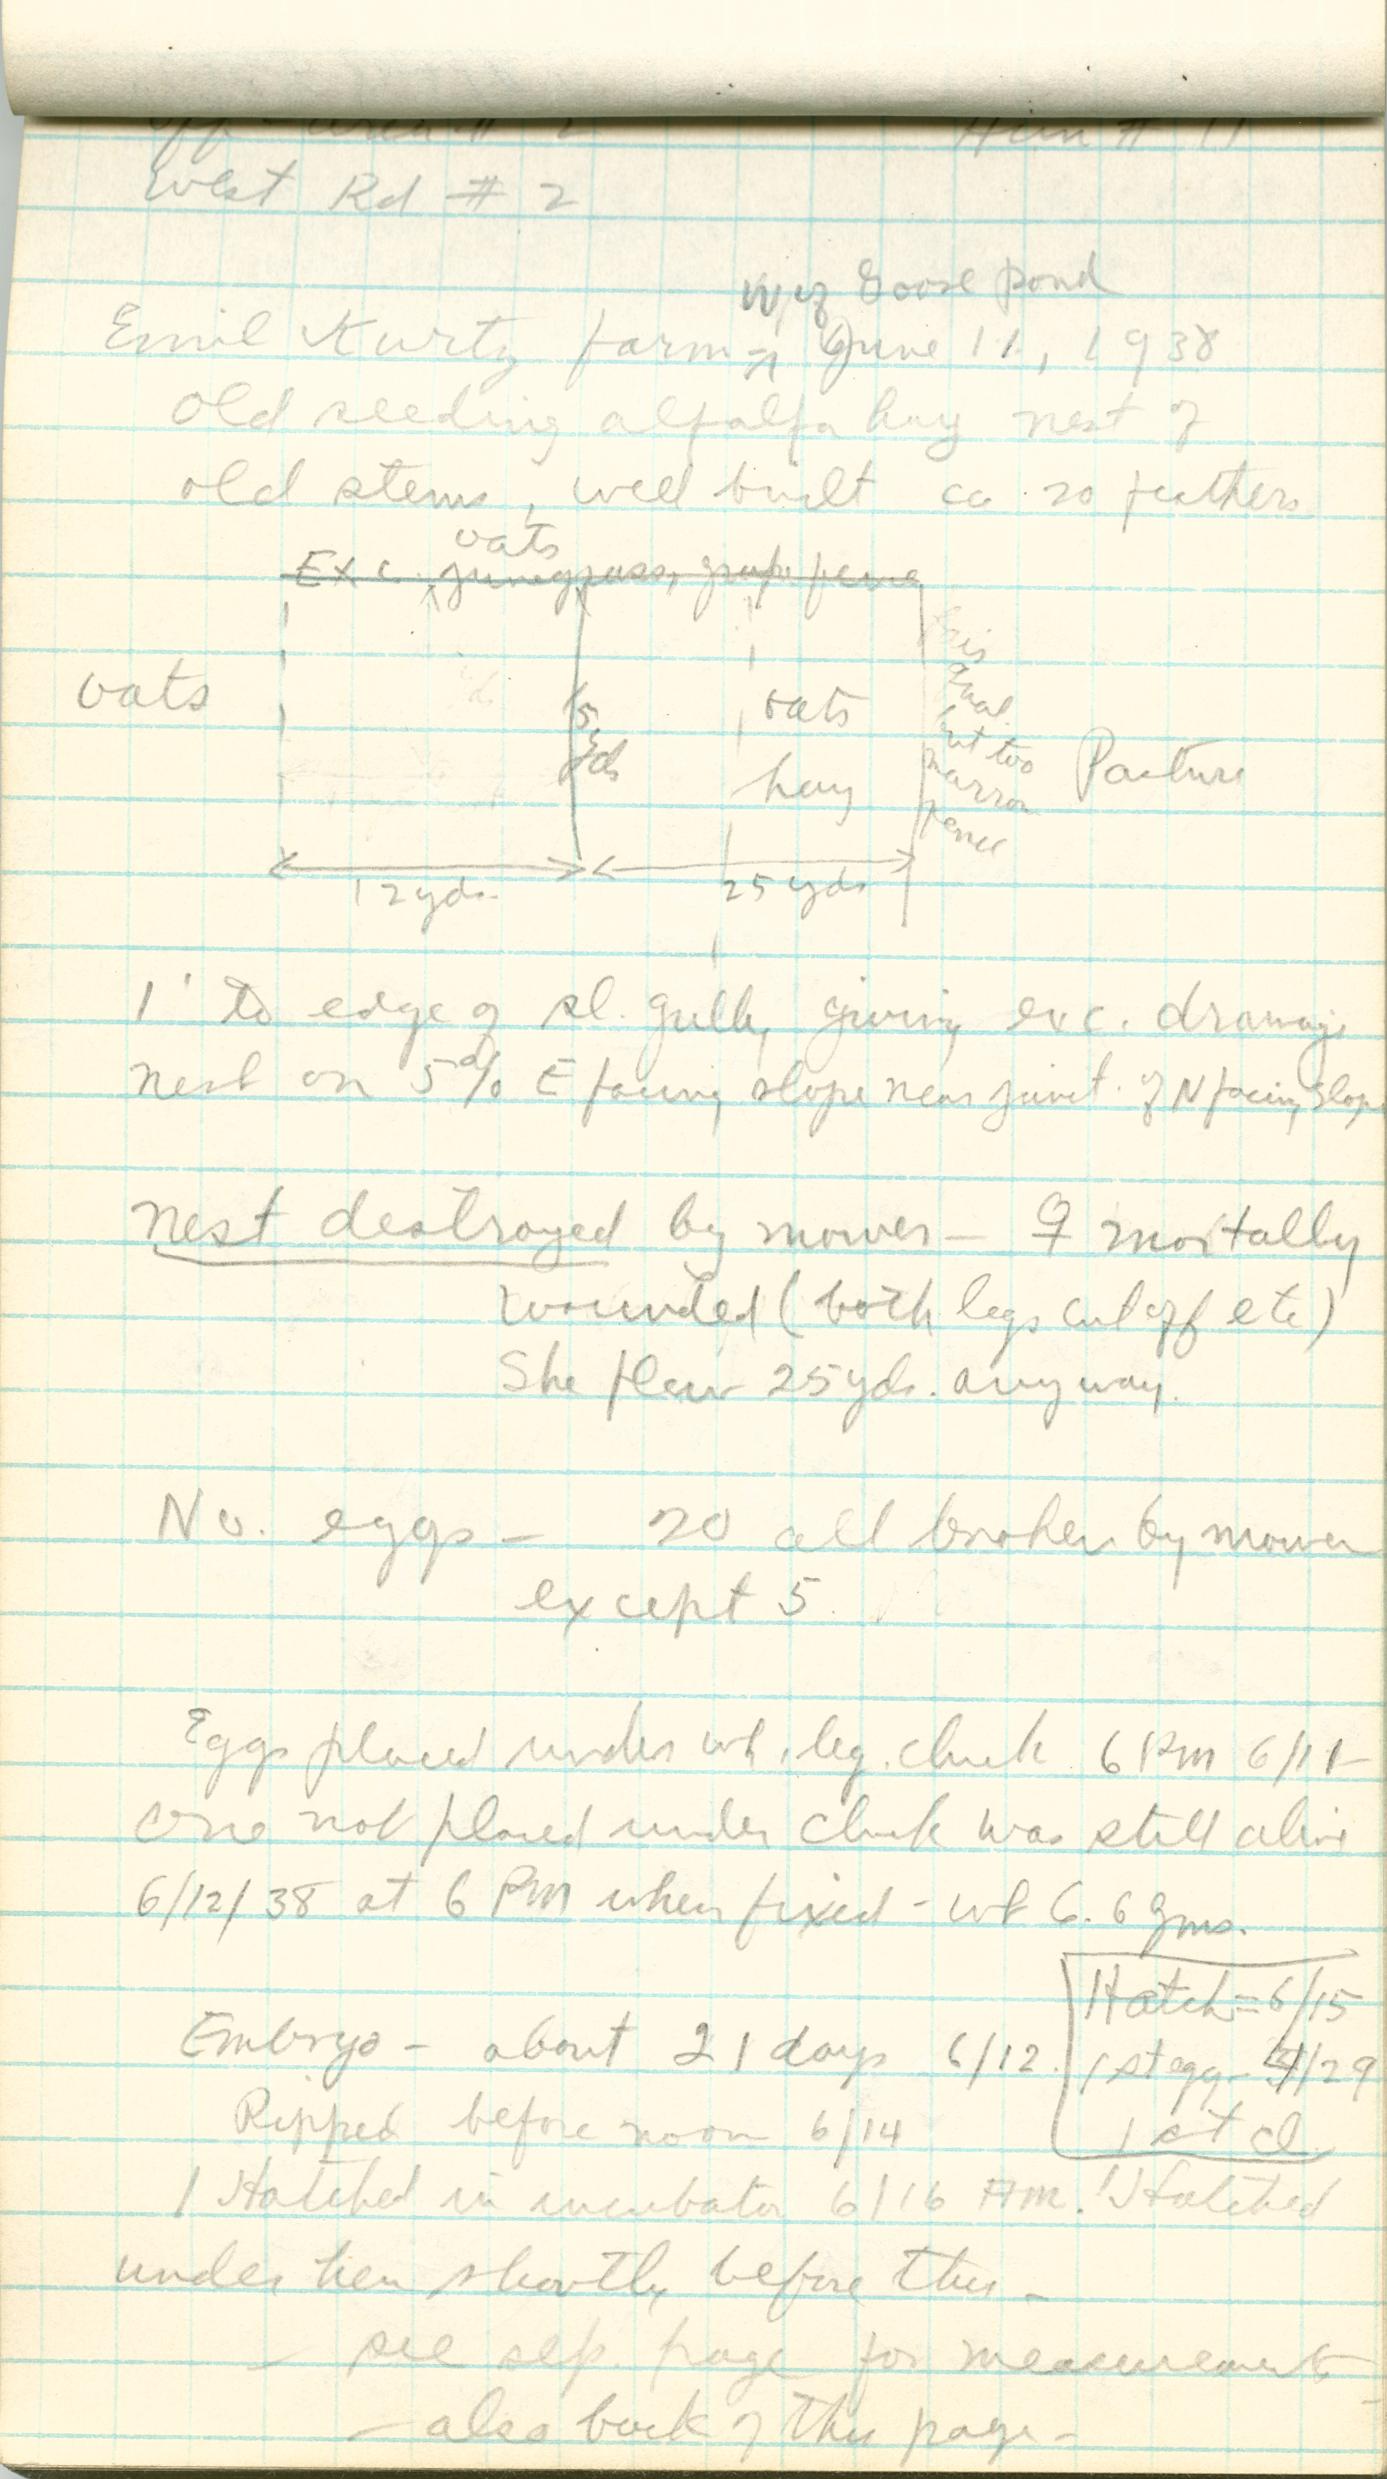 Off-area # 2 Hun # 11
West Rd # 2
W of Goose Pond
Emil Kurtz farm - June 11, 1938
Old seeding alfalfa hay nest of
old stems, well built ca 20 feathers
oats
Exc. junegrass, grape fence
oats
15 yds
oats
hay
qual.
but too
narrow
fence
Pasture
12 yds.
25 yds
1' to edge of sl. gully giving exc. drainage
nest on 5% E facing slope near junct. of N facing slope
Nest destroyed by mower - ♀ mortally
wounded (both legs cut off etc)
She flew 25 yds. anyway.
No. eggs - 20 all broken by mower
except 5
Eggs placed under wh. leg. cluck 6 PM 6/11 -
One not placed under cluck was still alive
6/12/38 at 6 PM when fixed - wt 6.6 gms.
Hatch = 6/15
Embryo - about 21 days 6/12.
1st egg - /29
Pipped before noon 6/14
1st cl.
1 Hatched in incubator 6/16 AM. 1 Hatched
under hen shortly before this -
- see sep. page for measurements -
- also back of this page -